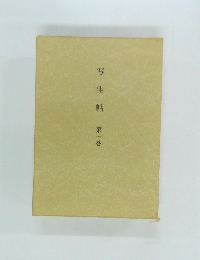 写生帖 第一巻